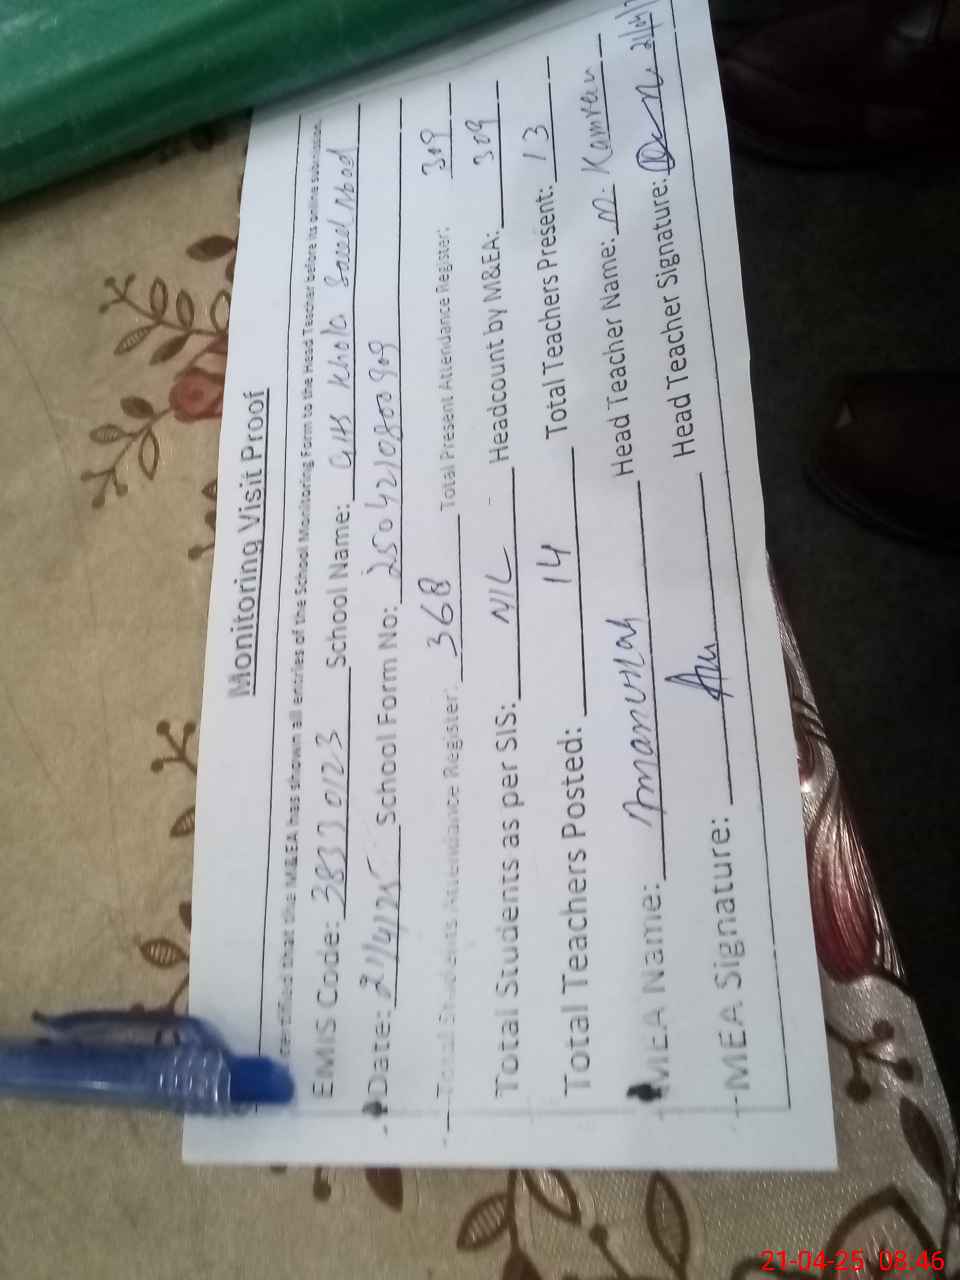 Monitoring Visit Proof
certified that the M&EA has shown all entries of the School Monitoring Form to the Head Teacher before its online submission.
EMIS Code: 38330123 School Name: GHS Khola Saeed Abad
Date: 21/4/25 School Form No: 2504210800909
Total Students Attendance Register: 368 Total Present Attendance Register: 309
Total Students as per SIS: NIL - Headcount by M&EA: 309
Total Teachers Posted: 14 Total Teachers Present: 13
MEA Name: Amanullah Head Teacher Name: M. Kamran
MEA Signature: Head Teacher Signature: 21/04/
21-04-25 08:46